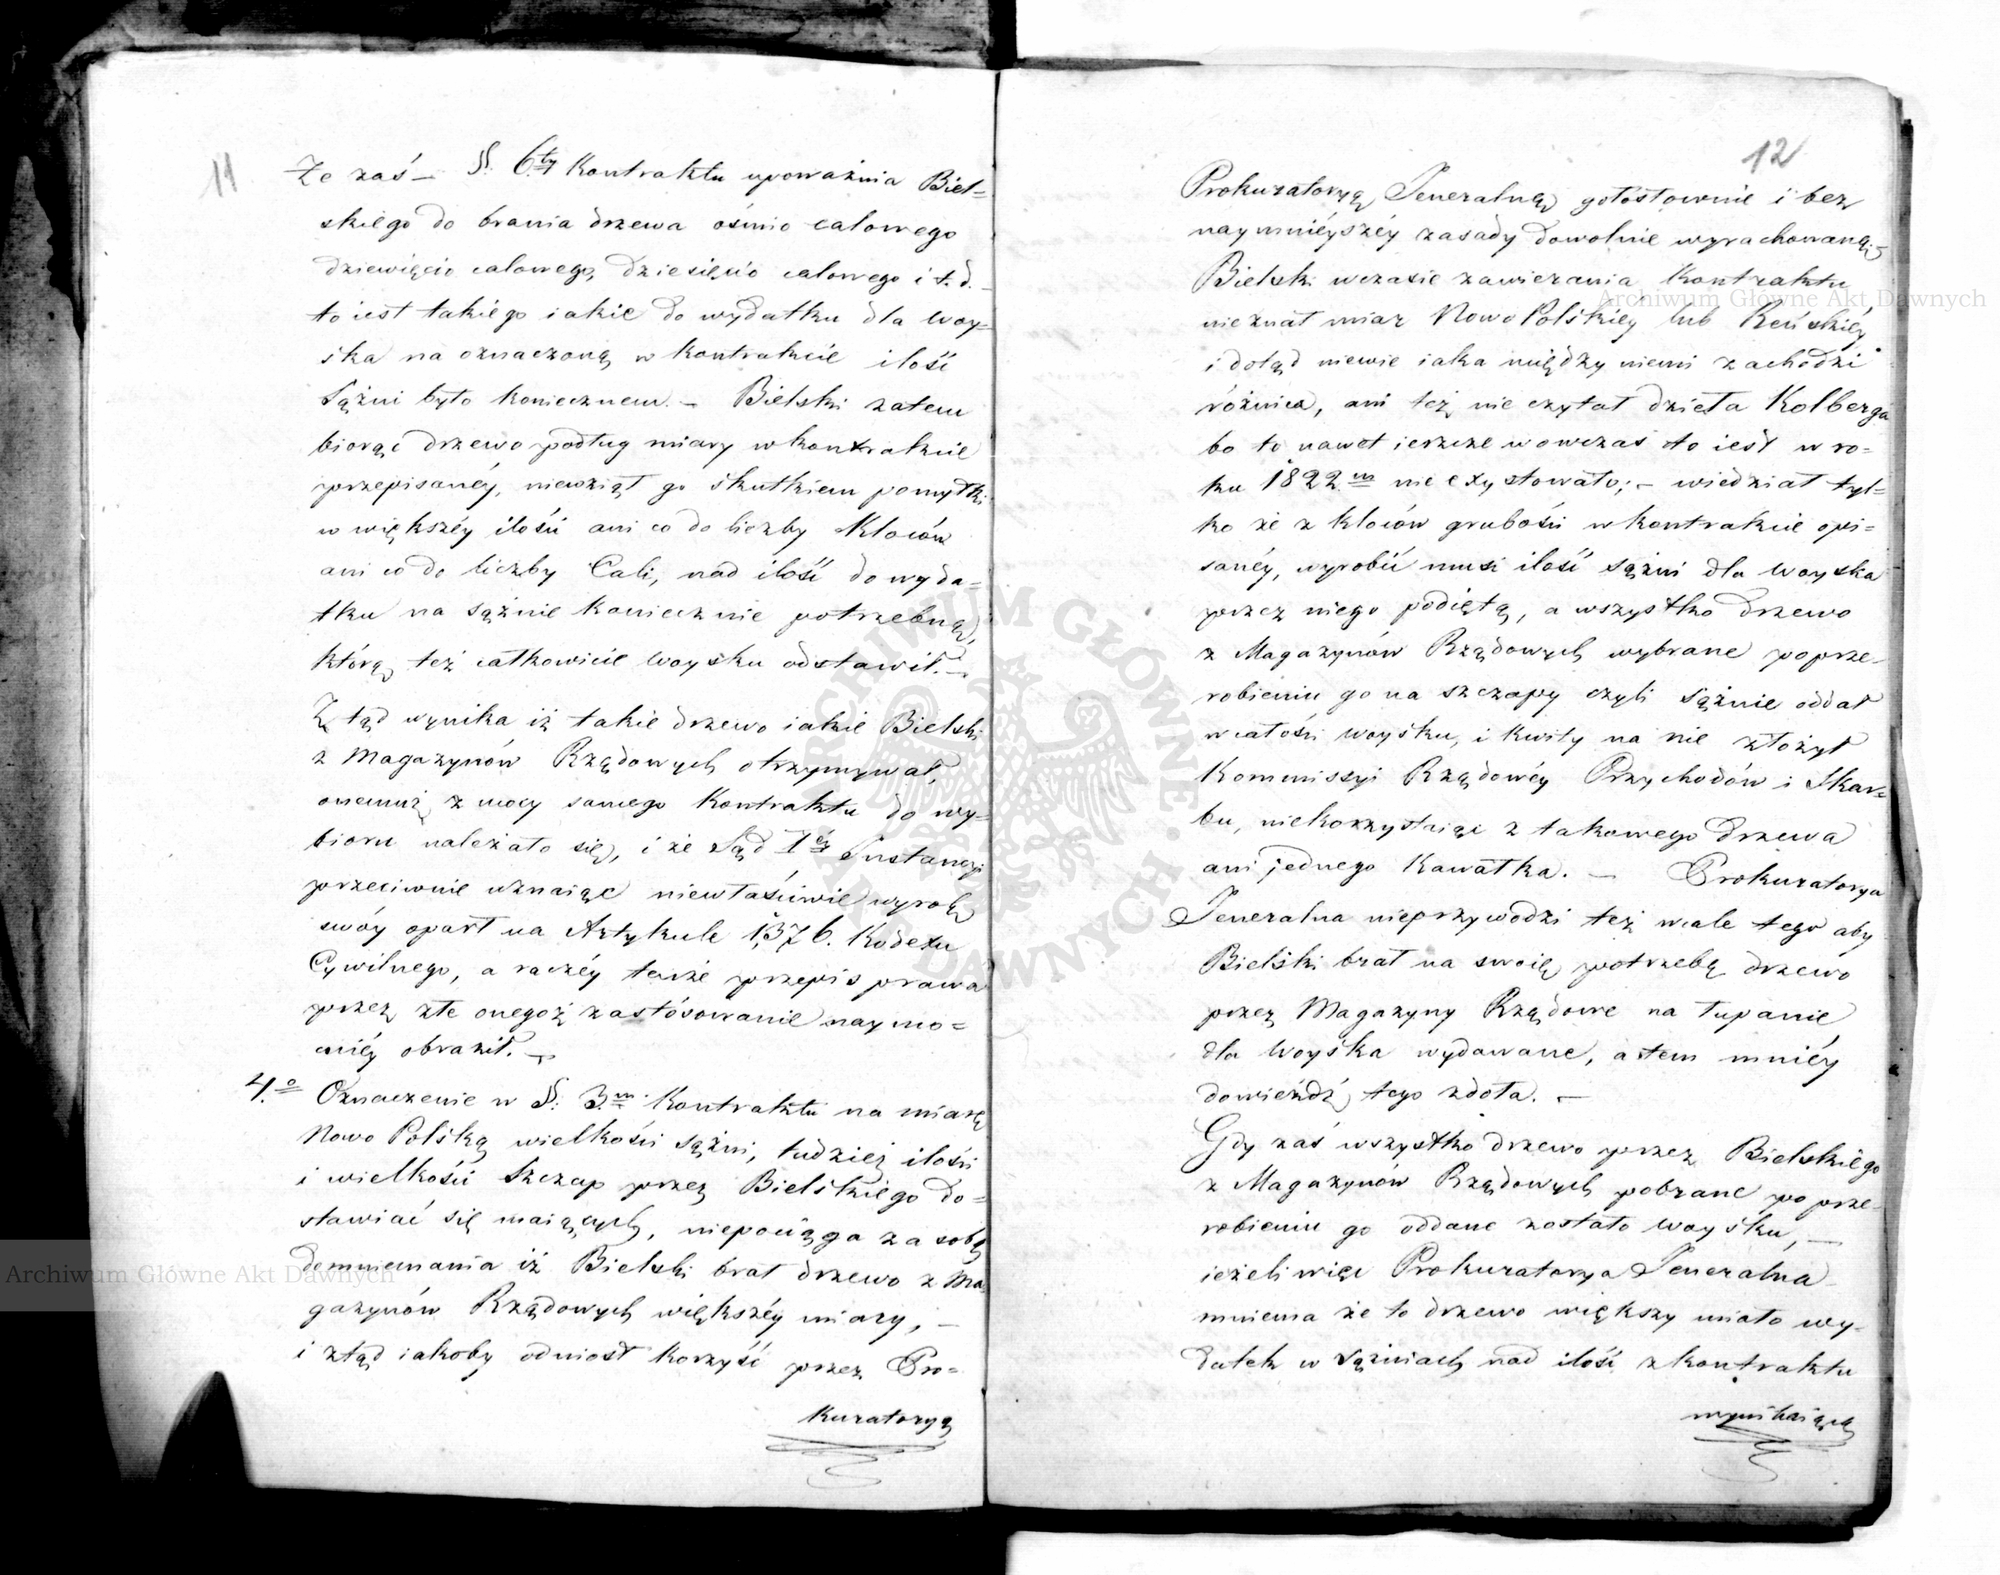 11
Że zaś – §. 6ty Kontraktu upoważnia Biel=
skiego do brania drzewa ośmio calowego
dziewięcio calowego, dziesięcio calowego i t. d.
to iest takiego iakie do wydatku dla woy=
ska na oznaczoną w kontrakcie ilość
Sążni było koniecznem. – Bielski zatem
biorąc drzewo podług miary w kontrakcie
przepisanéy, niewziął go skutkiem pomyłki
w większéy ilości ani co do liczby Kloców
ani co do liczby Cali, nad ilość do wyda=
tku na sążnie koniecznie potrzebną,
którą też całkowicie woysku odstawił. –
Z tąd wynika iż takie drzewo iakie Bielski
z Magazynów Rządowych otrzymywał,
onemuż z mocy samego Kontraktu do wy=
bioru należało się, i że Sąd 1éj Instancyi
przeciwnie uznaiąc niewłaściwie wyrok
swóy oparł na Artykule 1376. Kodexu
Cywilnego, a raczéy tenże przepis prawa
przez złe onegoż zastósowanie naymo=
cniéy obraził. –
4.o Oznaczenie w §. 3m Kontraktu na miarę
Nowo Polską wielkości sążni, tudzież ilości
i wielkości Szczap przez Bielskiego do=
stawiać się maiących, niepociąga za sobą
domniemania iż Bielski brał drzewo z Ma
gazynów Rządowych większéy miary, –
i ztąd iakoby odniosł korzyść przez Pro=
kuratoryą
12
Prokuratoryą Jeneralną gołosłownie i bez
naymnieyszéy zasady dowolnie wyrachowaną,
Bielski wczasie zawierania Kontraktu
nieznał miar Nowo Polskiéy lub Reńskiéy
i dotąd niewie iaka między niemi zachodzi
różnica, ani też nie czytał dzieła Kolberga
bo to nawet ieszcze wowczas to iest w ro=
ku 1822m nie exystowało; – wiedział tyl=
ko że z kloców grubości w kontrakcie opi=
sanéy, wyrobić musi ilość sążni dla woyska
przez niego podiętą, a wszystko drzewo
z Magazynów Rządowych wybrane poprze=
robieniu go na szczapy czyli sążnie oddał
w całości woysku, i kwity na nie złożył
Kommissyi Rządowéy Przychodów i Skar=
bu, niekorzystaiąc z takowego drzewa
ani jednego Kawałka. – Prokuratorya
Jeneralna nieprzywodzi też wcale tego aby
Bielski brał na swoię potrzebę drzewo
przez Magazyny Rządowe na łupanie
dla woyska wydawane, a tem mniéy
dowieśdź tego zdoła. –
Gdy zaś wszystko drzewo przez Bielskiego
z Magazynów Rządowych pobrane po prze=
robieniu go oddane zostało woysku, –
ieżeli więc Prokuratorya Jeneralna
mniema że to drzewo większy miało wy=
datek w sążniach nad ilość z kontraktu
wynikaiącą
Archiwum Główne Akt Dawnych
Archiwum Główne Akt Dawnych
ARCHIWUM GŁÓWNE AKT DAWNYCH